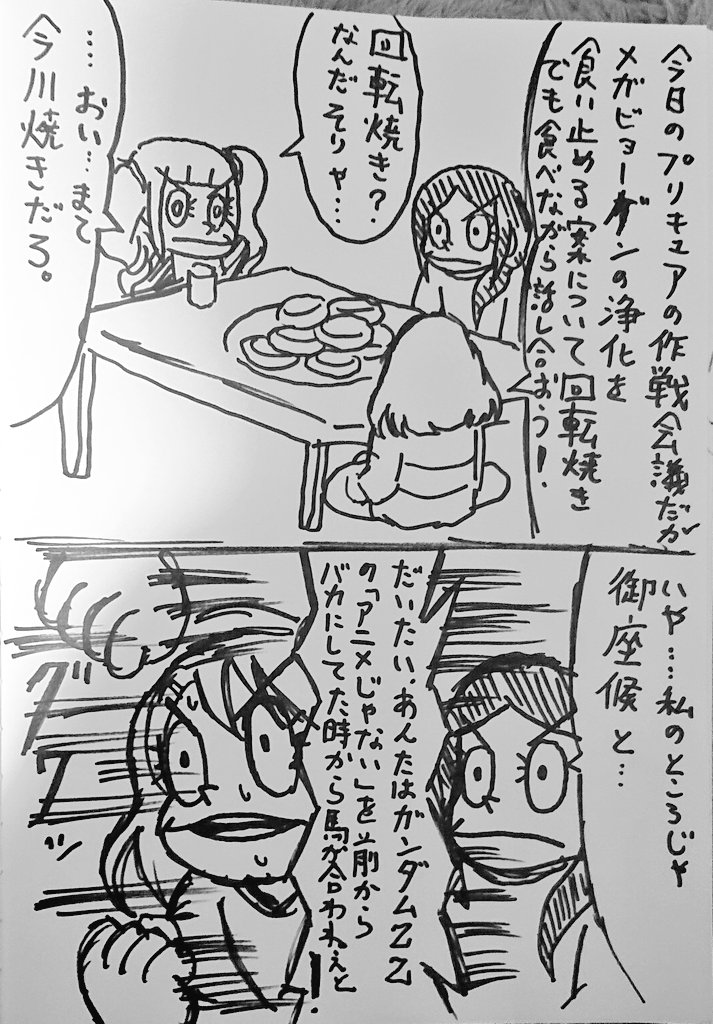 今日のプリキュアの作戦会議だが
メガビョーゲンの浄化を
食い止める案について回転焼き
でも食べながら話し合おう!
回転焼き?
なんだそりゃ…
……おい…まて
今川焼きだろ。
いや…私のところじゃ
御座候と…
だいたい、あんたはガンダムZZ
の「アニメじゃない」を前から
バカにしてた時から馬が合わねぇと
!
ググッ